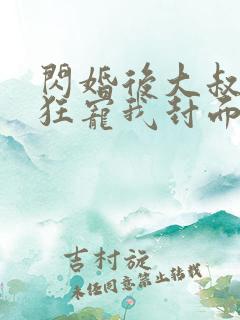 閃婚後大叔
狂寵我封面
吉村旋
未經同意禁止轉載